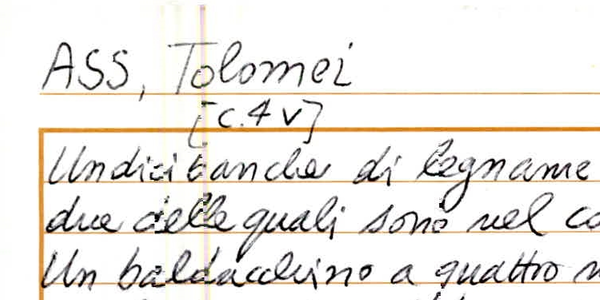 ASS, Tolomei
[c.4v]
Undici banche di legname
due delle quali sono nel
Un baldacchino a quattro